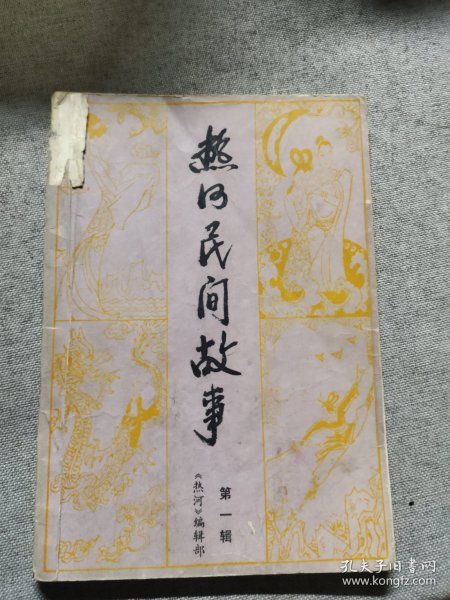 热河民间故事
第一辑
《热河》编辑部
孔夫子旧书网
www.kongfz.com